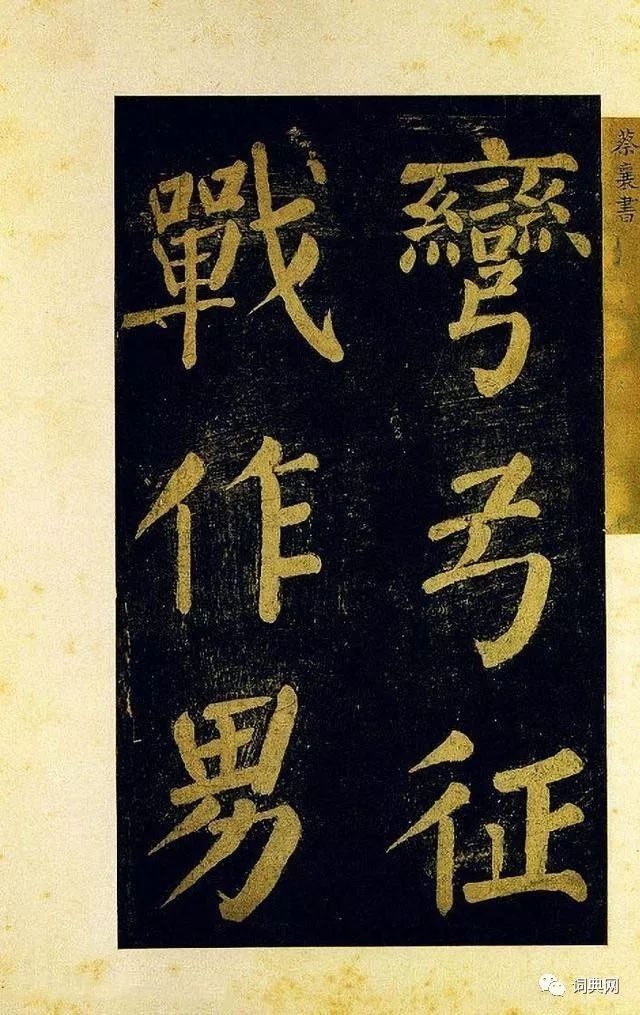 蔡襄書
彎弓征
戰作男
词典网